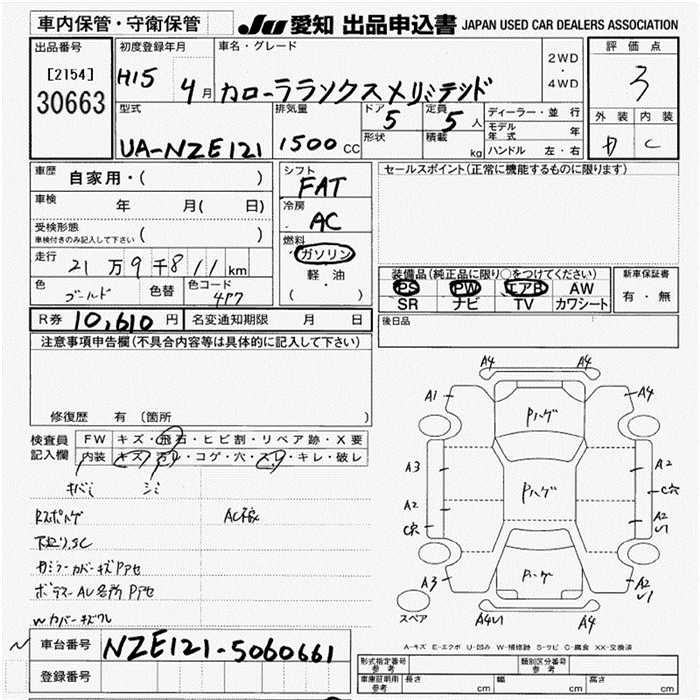 車内保管・守衛保管
JU 愛知 出品申込書 JAPAN USED CAR DEALERS ASSOCIATION
出品番号
[2154]
30663
初度登録年月
H15 4月
車名・グレード
カローラランクスXリミテッド
2WD
・
4WD
評価点
3
外装 内装
D C
型式
UA-NZE121
排気量
1500 CC
ドア 5
形状
定員 5 人
積載 kg
ディーラー・並行
モデル年式 年
ハンドル 左・右
車歴
自家用・( )
車検 年 月( 日)
受検形態
車検付きのみ記入して下さい ( )
走行
21万9千811 km
色
ゴールド
色替
色コード
4P7
シフト
FAT
冷房
AC
燃料
ガソリン
軽油
( ・ )
セールスポイント(正常に機能するものに限ります)
装備品(純正品に限り○をつけてください)
PS PW エアB AW
SR ナビ TV カワシート
新車保証書
有・無
R券 10,610 円 名変通知期限 月 日
後日品
注意事項申告欄(不具合内容等は具体的に記入して下さい)
修復歴 有 (箇所 )
検査員記入欄
FW キズ・飛石・ヒビ割・リペア跡・X要
内装 キズ・汚レ・コゲ・穴・スレ・キレ・破レ
キバミ シミ
AC
A4 A4
A1 A4
Pハゲ
A3 A2
C穴
Pハゲ
A2 A2
C穴 U1
Pハゲ
A3 A2
U1
スペア
A4U1 A4
A-キズ E-エクボ U-凹み W-補修跡 S-サビ C-腐食 XX-交換済
車台番号 NZE121-5060661
登録番号
型式指定番号
参考
類別区分番号
参考
車庫証明用
参考
長さ cm 幅 cm 高さ cm